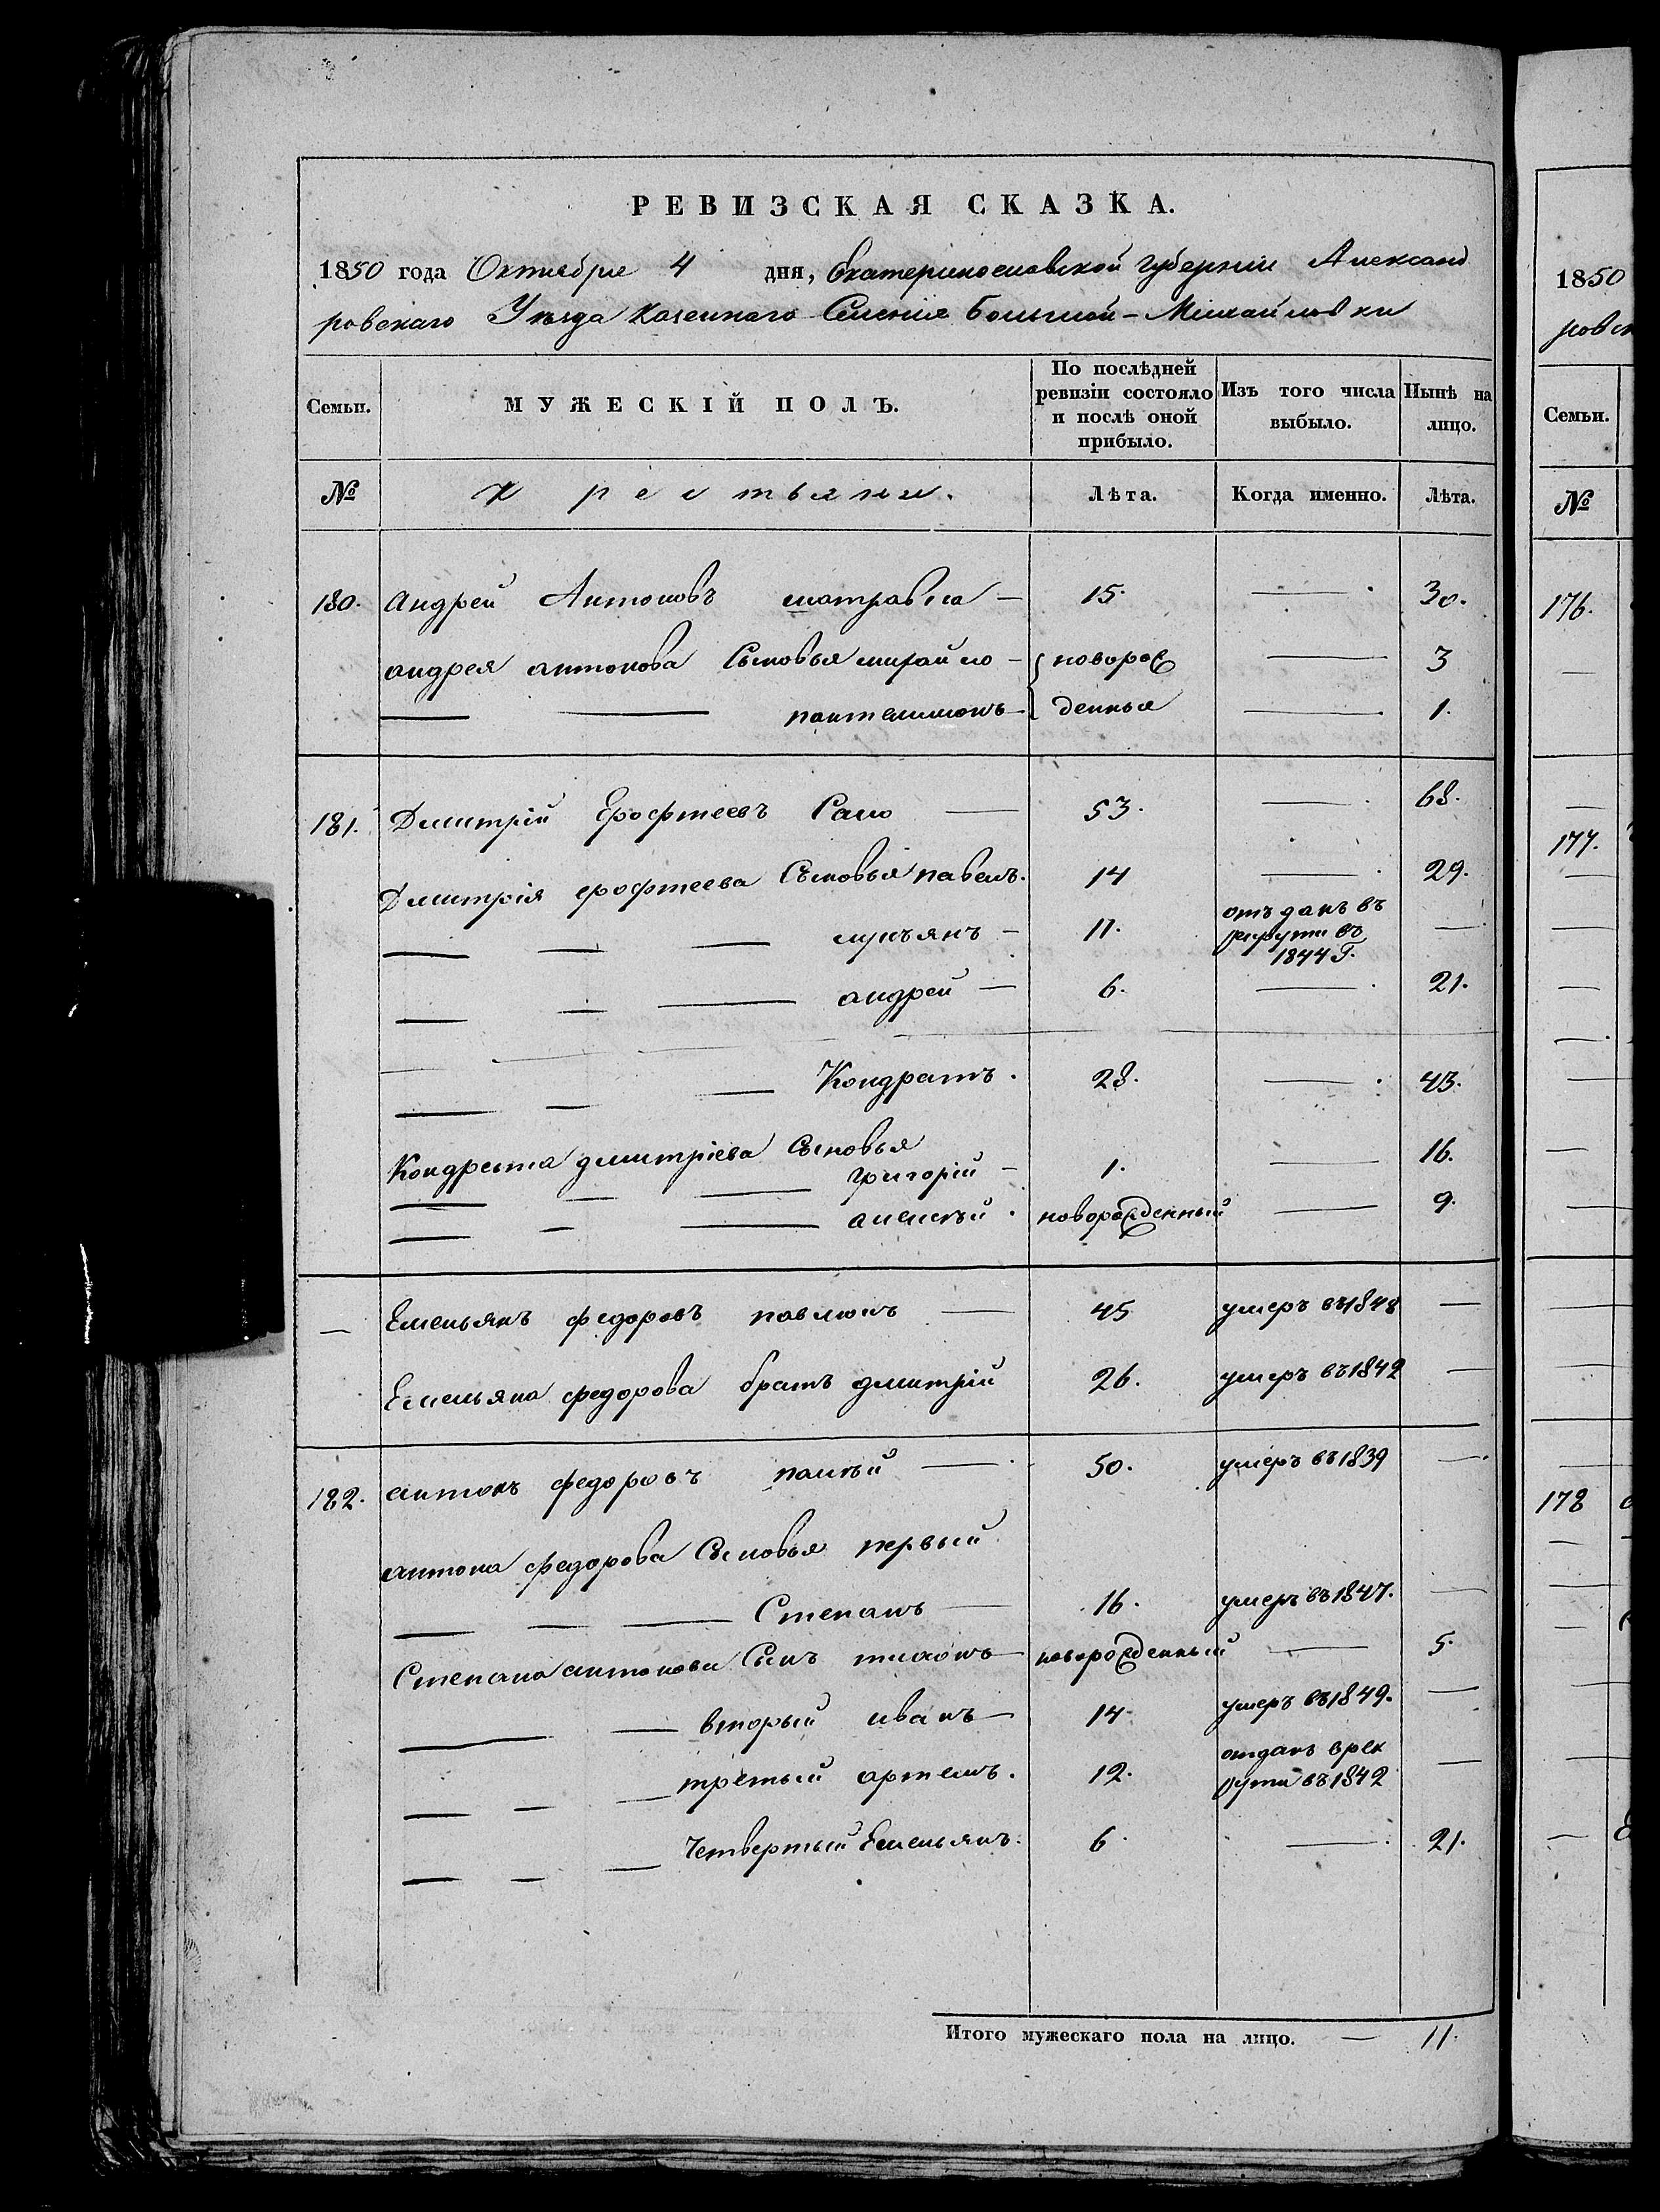 РЕВИЗСКАЯ СКАЗКА.
1850 года Октября 4 дня, Екатеринославской Губерніи Александ
ровскаго Уѣзда Казеннаго Селенія Большой-Михайловки
Семьи. МУЖЕСКІЙ ПОЛЪ. По послѣдней ревизіи состояло и послѣ оной прибыло. Изъ того числа выбыло. Нынѣ на лицо.
№ Крестьяни. Лѣта. Когда именно. Лѣта.
180. Андрей Антоновъ 15. — 30.
андрея антонова Сыновья михайло — новорож — 3
— — пантелимонъ — денныя — 1.
181. Дмитрій Ерофтеевъ Сало — 53. — 68.
Дмитрія ерофтеева Сыновья павелъ. 14 — 29.
— — — лукъянъ — 11. отъданъ въ рекруты въ 1844 Г. —
— — — андрей — 6. — 21.
— — — Кондратъ. 28. — 43.
Кондрата дмитріева Сыновья
— — — григорій — 1. — 16.
— — — алексѣй. новорожденный — 9.
— Емельянъ федоровъ — 45 умеръ въ 1848 —
Емельяна федорова братъ дмитрій 26. умеръ въ 1842 —
182. антонъ федоровъ палій — 50. умеръ въ 1839 —
антона федорова Сыновья первый
— — — Степанъ — 16. умеръ въ 1847. —
Степана антонова Сынъ тихонъ — новорожденный — 5.
— — вторый иванъ — 14 умеръ въ 1849. —
— — — третый артемъ. 12. отданъ врек руты въ 1842 —
— — — Четвертый Емельянъ. 6. — 21.
Итого мужескаго пола на лицо. — 11.
1850
ровск
Семьи.
№
176.
177.
178